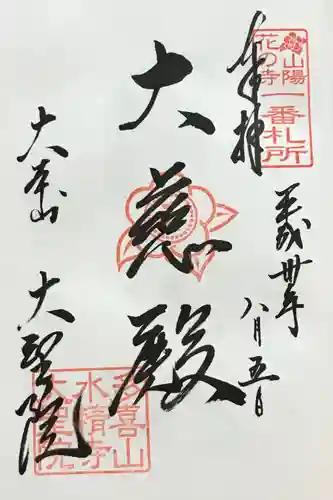 奉拝
山陽
花の寺
一番札所
平成卅年
八月五日
大慈殿
大本山
大聖院
多喜山
水精寺
大聖院